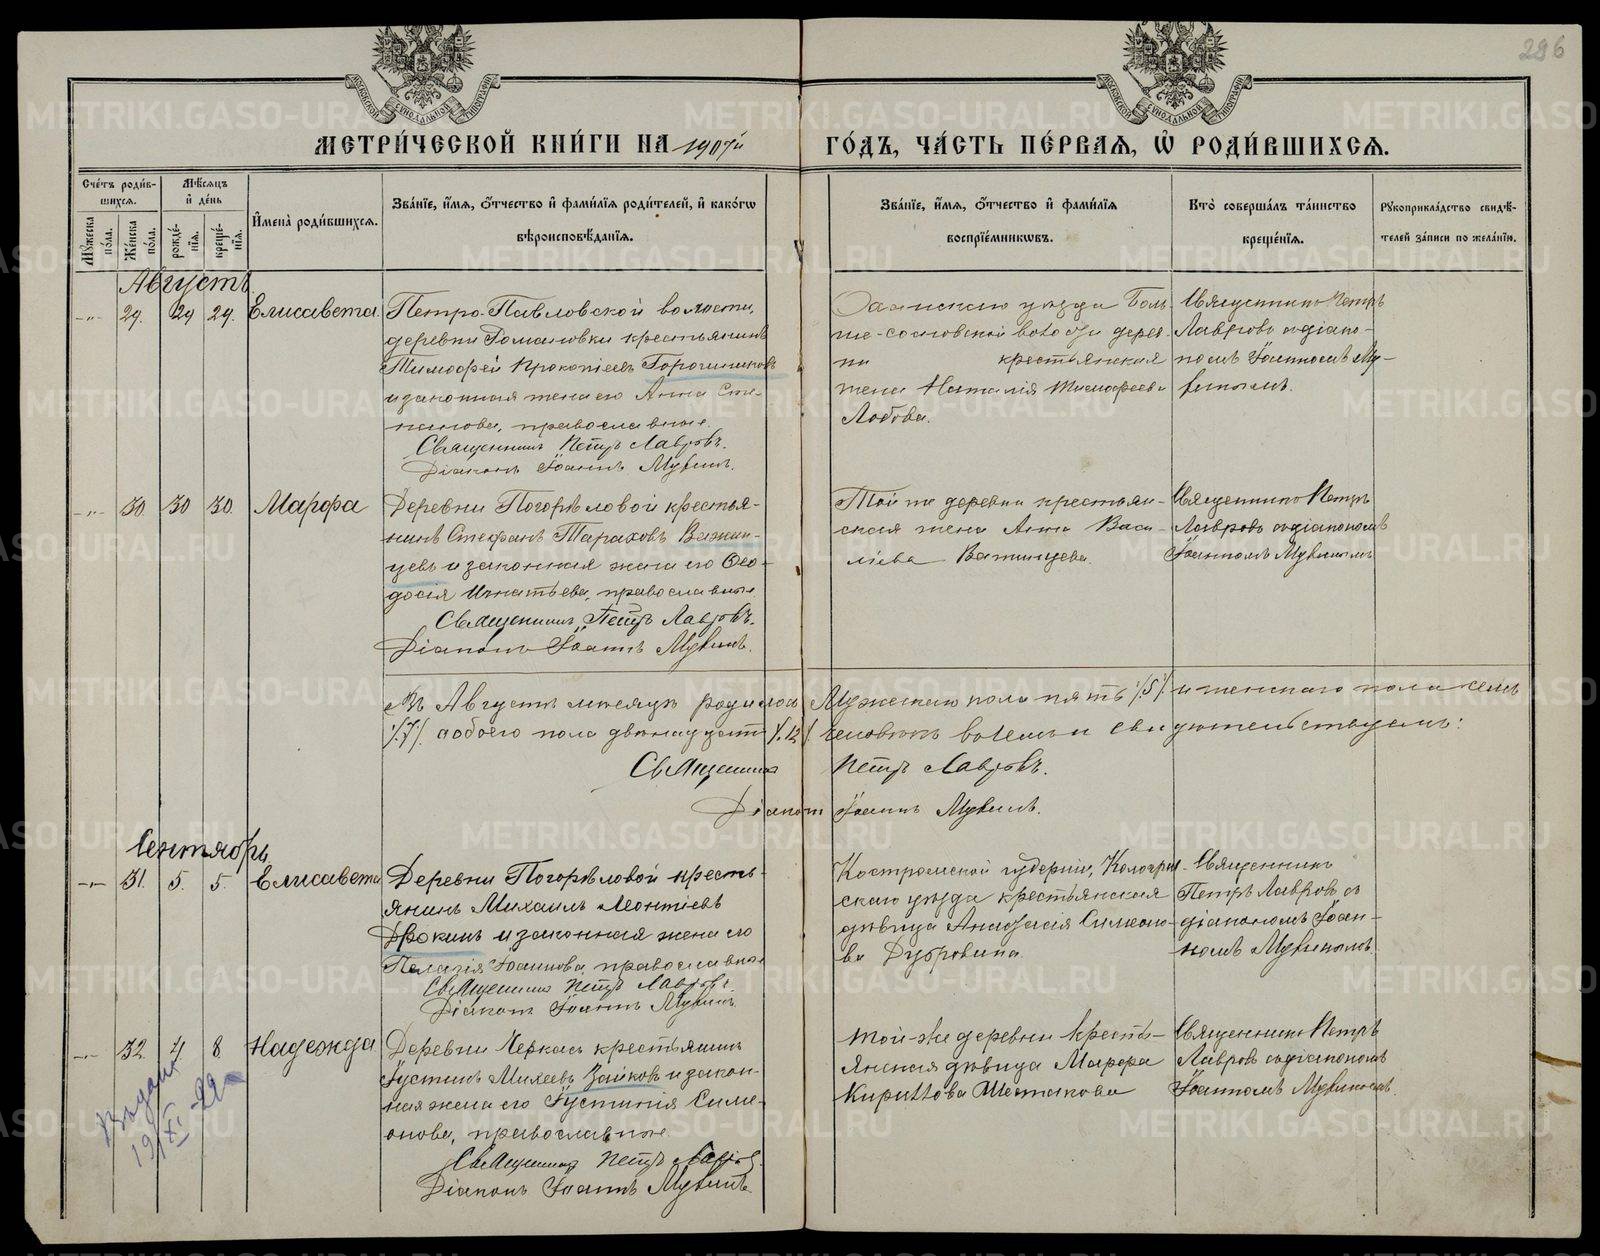 296
МЕТРИ́ЧЕСКОЙ КНИ́ГИ НА 1907й ГО́ДЪ, ЧА́СТЬ ПЕ́РВАѦ, Ѡ҆ РОДИ́ВШИХСѦ.
Сче́тъ роди́в-
шихсѧ.
Мꙋ́жеска по́ла.
Же́нска по́ла.
Мѣ́сѧцъ
и҆ де́нь
рожде́-
нїѧ.
креще́-
нїѧ.
И҆мена̀ роди́вшихсѧ.
Зва́нїе, и҆́мѧ, ѻ҆́тчество и҆ фами́лїѧ роди́телей, и҆ како́гѡ
вѣроисповѣ́данїѧ.
Зва́нїе, и҆́мѧ, ѻ҆́тчество и҆ фами́лїѧ
воспрїе́мникѡвъ.
Кто̀ соверша́лъ та́инство
креще́нїѧ.
Рꙋкоприкла́дство свидѣ́-
телей за́писи по жела́нїю.
Августъ
29. 29 29. Елисавета
Петро-Павловской волости,
деревни Романовки крестьянинъ
Тимофей Прокопіевъ
и законная жена его Анна Сте-
панова, православные.
Священникъ Петръ Лавровъ.
Діаконъ Іоаннъ Мувинъ.
уѣзда Боль-
ше-сосновской волости дерев-
ни крестьянская
жена Наталія Тимофеева
Лобова.
Священникъ Петръ
Лавровъ съ діако-
номъ Іоанномъ Му-
винымъ.
30. 30 30. Марфа
Деревни Погорѣловой крестья-
нинъ Стефанъ Тараховъ Важин-
цевъ и законная жена его Ѳео-
досія Игнатьева, православные
Священникъ Петръ Лавровъ.
Діаконъ Іоаннъ Мувинъ.
Той же деревни крестьян-
ская жена Анна Васи-
льева
Священникъ Петръ
Лавровъ съ діакономъ
Іоанномъ Мувинымъ
Въ Августѣ мѣсяцѣ родилось Мужескаго пола пять /5/ и женскаго пола семь
/7/ а обоего пола двѣнадцать /12/ человѣкъ въ чемъ и свидѣтельствуемъ:
Священникъ Петръ Лавровъ.
Діаконъ Іоаннъ Мувинъ.
Сентябрь
31. 5. 5. Елисавета
Деревни Погорѣловой кресть-
янинъ Михаилъ Леонтіевъ
Дрокинъ и законная жена его
Пелагія Іоаннова, православные
Священникъ Петръ Лавровъ.
Діаконъ Іоаннъ Мувинъ.
Костромской губерніи, Кологрив-
скаго уѣзда крестьянская
дѣвица Анастасія Симеоно-
ва Дубровина.
Священникъ
Петръ Лавровъ съ
діакономъ Іоан-
номъ Мувинымъ.
32. 7. 8 Надежда
Деревни Черкасъ крестьянинъ
Іустинъ Михеевъ Зайковъ и закон-
ная жена его Іустинія Симе-
онова, православные
Священникъ Петръ Лавровъ.
Діаконъ Іоаннъ Мувинъ.
Той-же деревни кресть-
янская дѣвица Марфа
Кириллова Шестакова
Священникъ Петръ
Лавровъ съ діакономъ
Іоанномъ Мувинымъ.
METRIKI.GASO-URAL.RU